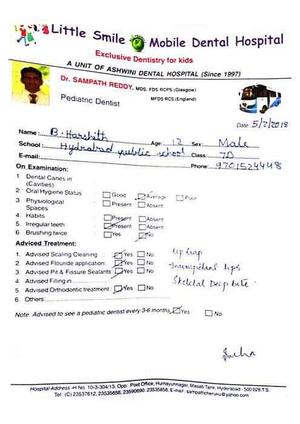 Little Smile Mobile Dental Hospital
Exclusive Dentistry for kids
A UNIT OF ASHWINI DENTAL HOSPITAL (Since 1997)
Dr. SAMPATH REDDY, MDS, FDS RCPS (Glasgow)
MFDS RCS (England)
Pediatric Dentist
Date: 5/2/2018
Name : B. Harshith Age: 12 Sex: Male
School : Hyderabad public school Class: 7D
E-mail: Phone: 9701524448
On Examination:
1 Dental Caries in (Cavities)
2. Oral Hygiene Status Good Average Poor
3. Physiological Spaces Present Absent
4. Habits Present Absent
5. Irregular teeth Present Absent
6. Brushing twice Yes No
Adviced Treatment:
1. Advised Scaling Cleaning Yes No Lip trap
2. Advised Flouride application Yes No Incompetent lips
3. Advised Pit & Fissure Sealants Yes No Skeletal Deep bite
4. Advised Filling in Yes No
5. Advised Orthodontic treatment Yes No
6. Others:
Note: Advised to see a pediatric dentist every 3-6 months Yes No
Hospital Address -H No. 10-3-304/13, Opp: Post Office, Humayunnagar, Masab Tank, Hyderabad - 500 028.T.S.
Tel.: (C) 23537612, 23535658, 23590690, 23535858 E-mail: sampathcheruvu@yahoo.com